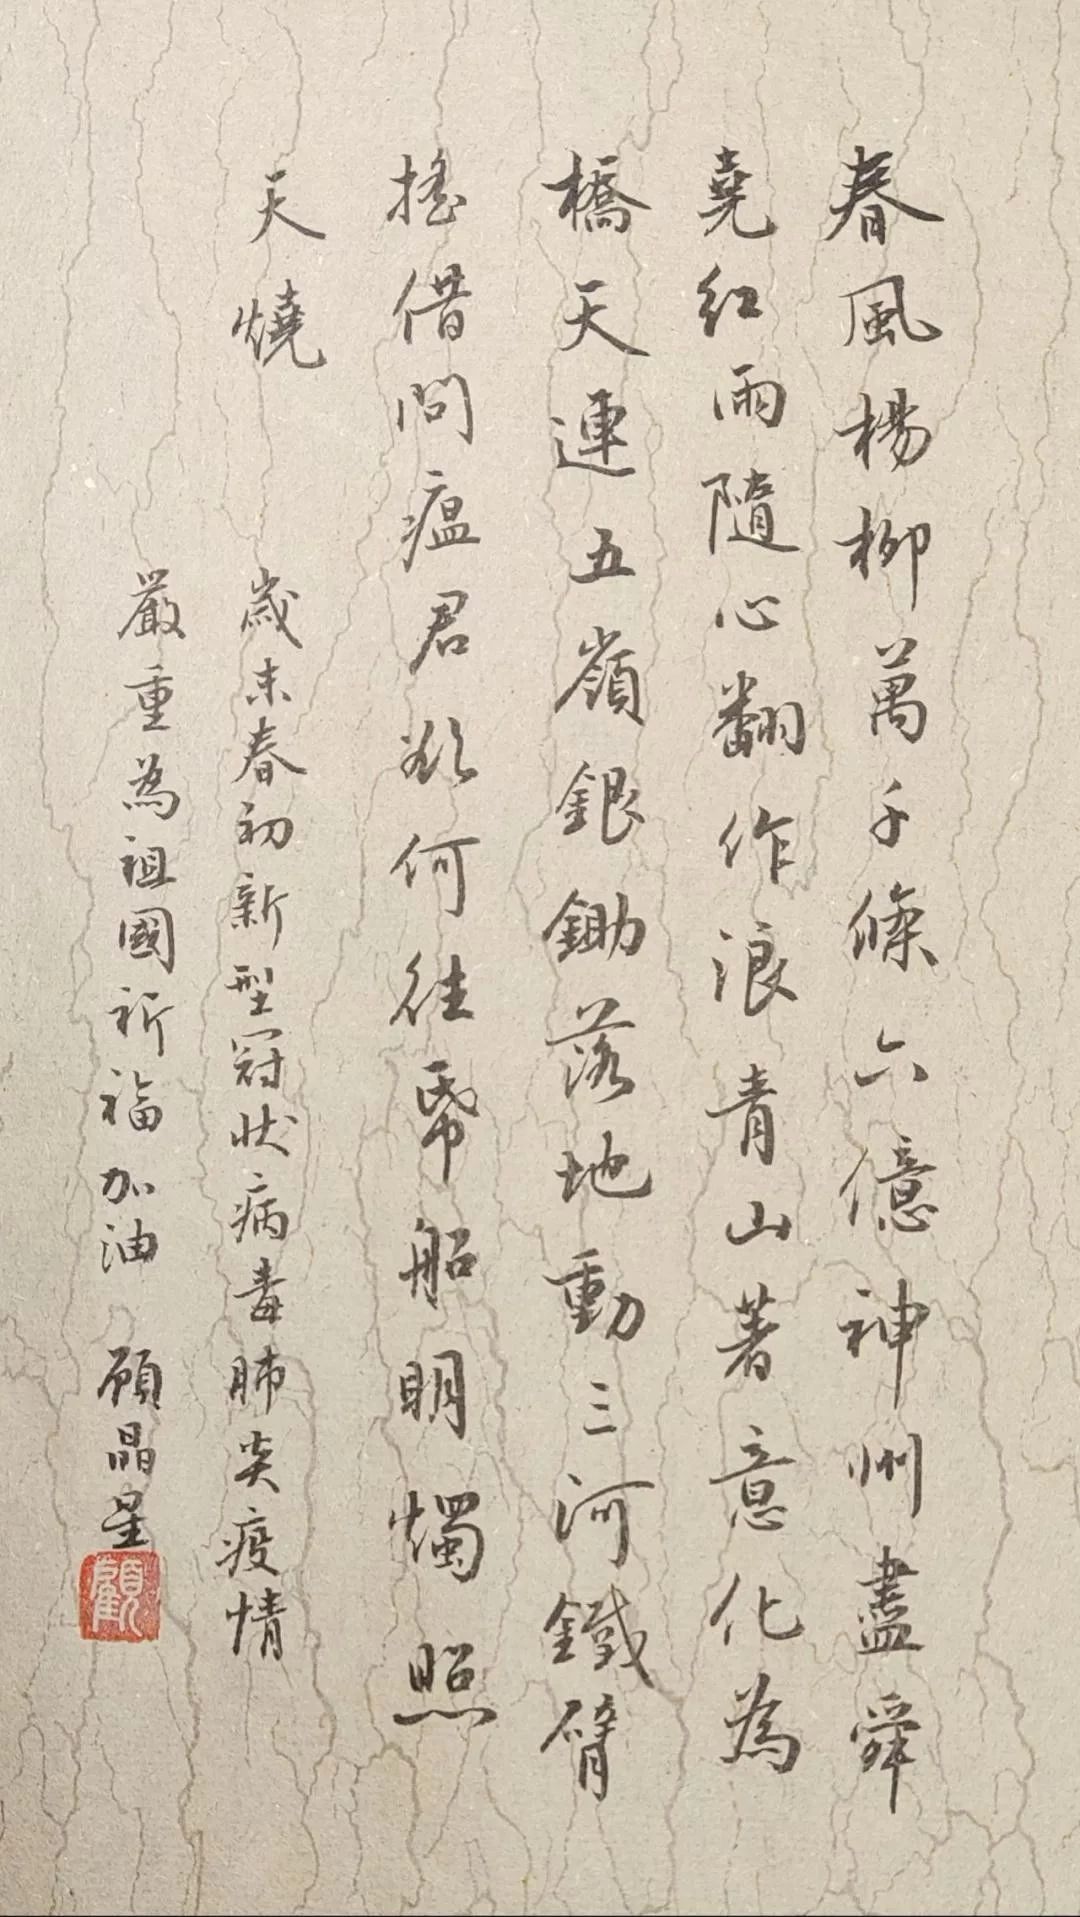 春風楊柳萬千條六億神州盡舜
堯紅雨隨心翻作浪青山著意化為
橋天連五嶺銀鋤落地動三河鐵臂
搖借問瘟君欲何往帋船明燭照
天燒
歲末春初新型冠狀病毒肺炎疫情
嚴重為祖國祈福加油 顾晶星
顧